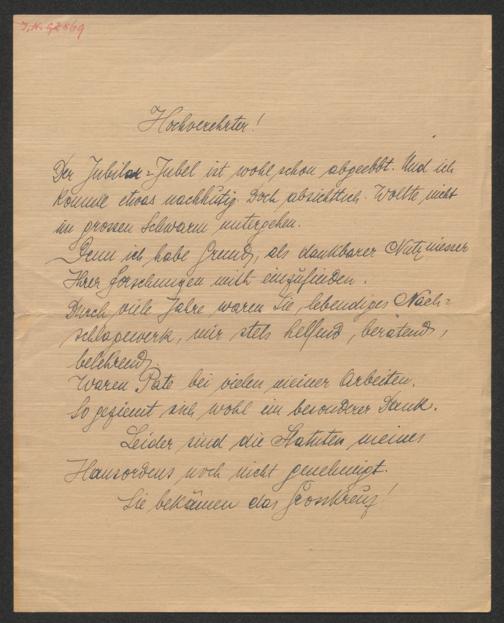 I.N. 92869
Hochverehrter!
Der Jubilar-Jubel ist wohl schon abgeebbt. Und ich
komme etwas nachhütig. Doch absichtlich. Wollte nicht
im grossen Schwarm untergehen.
Denn ich habe Grund, als dankbarer Nutzniesser
Ihrer Forschungen mich einzufinden.
Durch viele Jahre waren Sie lebendiges Nach-
schlagewerk, mir stets helfend, beratend,
belehrend.
Waren Pate bei vielen meiner Arbeiten.
So geziemt sich wohl ein besonderer Dank.
Leider sind die Statuten meines
Hausordens noch nicht genehmigt.
Sie bekämen das Grosskreuz!